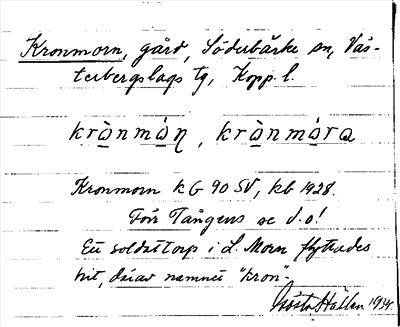 Kronmorn, gård, Söderbärke sn, Väs-
terbergslags tg, Kopp. l.
krònmòn, krònmòra
Kronmorn k G 90 SV, kb 1928.
Förr Tångens se d.o!
Ett soldattorp i L. Morn flyttades
hit, därav namnet "kron".
Gösta Hallén 1934.